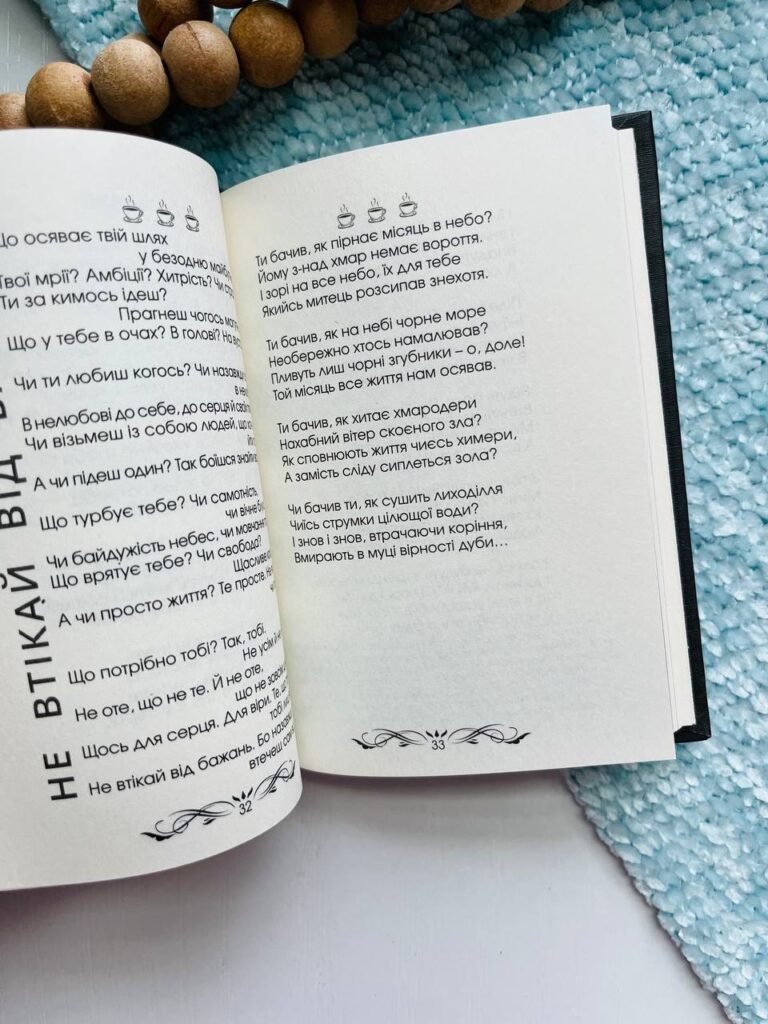 НЕ ВТІКАЙ ВІД
що осяває твій шлях
у безодню
Твої мрії? Амбіції? Хитрість? Чи
Ти за кимось ідеш?
Прагнеш чогось
Що у тебе в очах? В голові? На
Чи ти любиш когось? Чи
В нелюбові до себе, до серця й
Чи візьмеш із собою людей, що
А чи підеш один? Так боїшся знайти
Що турбує тебе? Чи самотність,
чи вічне
Чи байдужість небес, чи мовчання
Що врятує тебе? Чи свобода?
Щасливе
А чи просто життя? Те просте.
Що потрібно тобі? Так, тобі.
Не усім й
Не оте, що не те. Й не оте,
що не
Щось для серця. Для віри. Те, що
тобі
Не втікай від бажань. Бо
втечеш
32
Ти бачив, як пірнає місяць в небо?
Йому з-над хмар немає вороття.
І зорі на все небо, їх для тебе
Якийсь митець розсипав знехотя.
Ти бачив, як на небі чорне море
Необережно хтось намалював?
Пливуть лиш чорні згубники – о, доле!
Той місяць все життя нам осявав.
Ти бачив, як хитає хмародери
Нахабний вітер скоєного зла?
Як сповнюють життя чиєсь химери,
А замість сліду сиплеться зола?
Чи бачив ти, як сушить лиходілля
Чиїсь струмки цілющої води?
І знов і знов, втрачаючи коріння,
Вмирають в муці вірності дуби...
33